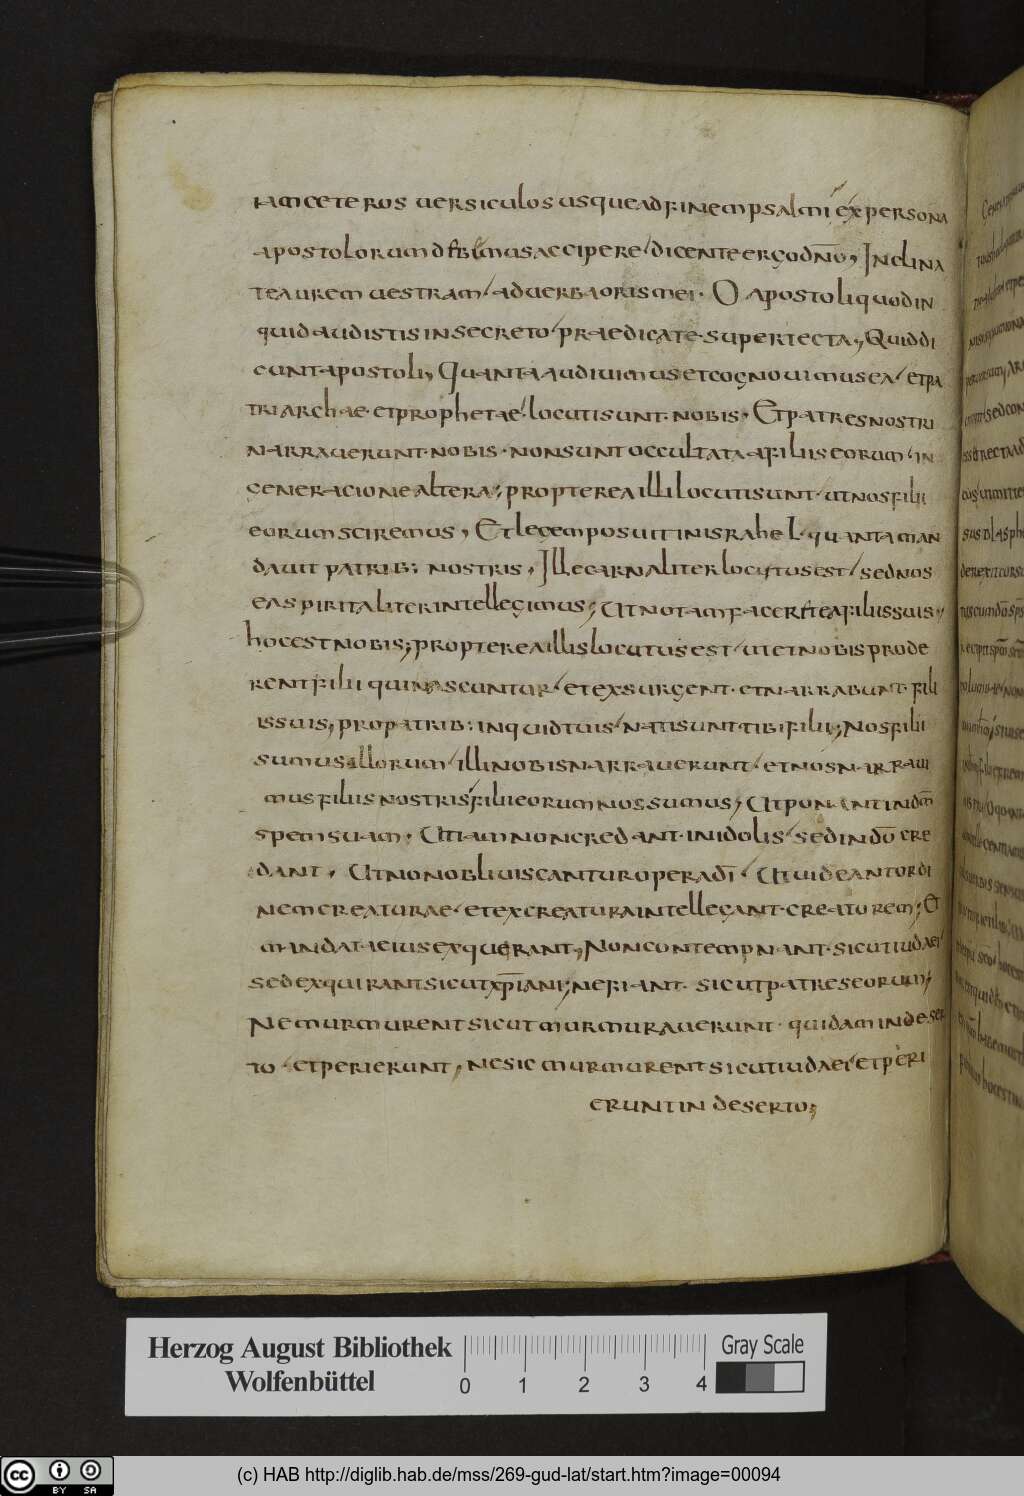 iam ceteros uersiculos usque ad finem psalmi ex persona
apostolorum debemus accipere dicente ergo dño, Inclina
te aurem uestram ad uerba oris mei. O apostoli quod in
quid audistis in secreto praedicate super tecta, Quid di
cunt apostoli, Quanta audiuimus et cognouimus ea et pa
triarchae et prophetae locuti sunt nobis. Et patres nostri
narrauerunt nobis. non sunt occultata a filiis eorum in
generacione altera; propterea illi locuti sunt ut nos filii
eorum sciremus, Et legem posuit in israhel. quanta man
dauit patrib: nostris, Ille carnaliter locutus est sed nos
ea spiritaliter intellegimus; Ut nota faceret ea filiis suis,
hoc est nobis; propterea illis locutus est ut et nobis prode
rent filii qui nascuntur et exsurgent. et narrabunt fili
is suis, pro patrib: inquid tuis nati sunt tibi filii; Nos filii
sumus illorum illi nobis narrauerunt et nos narraui
mus filiis nostris filii eorum nos sumus, Ut ponant in dm̄
spem suam. Ut iam non credant in idolis sed in dō cre
dant, Ut non obliuiscantur opera dī. Ut uideant ordi
nem creaturae et ex creatura intellegant creatorem; Et
mandata eius exquerant, Non contempnant sicut iudaei
sed exquirant sicut xp̄iani; ne fiant sicut patres eorum,
Ne murmurent sicut murmurauerunt quidam in deser
to et perierunt, ne sic murmurent sicut iudaei et peri
erunt in deserto;
Herzog August Bibliothek
Wolfenbüttel
0 1 2 3 4
Gray Scale
cc BY SA
(c) HAB http://diglib.hab.de/mss/269-gud-lat/start.htm?image=00094